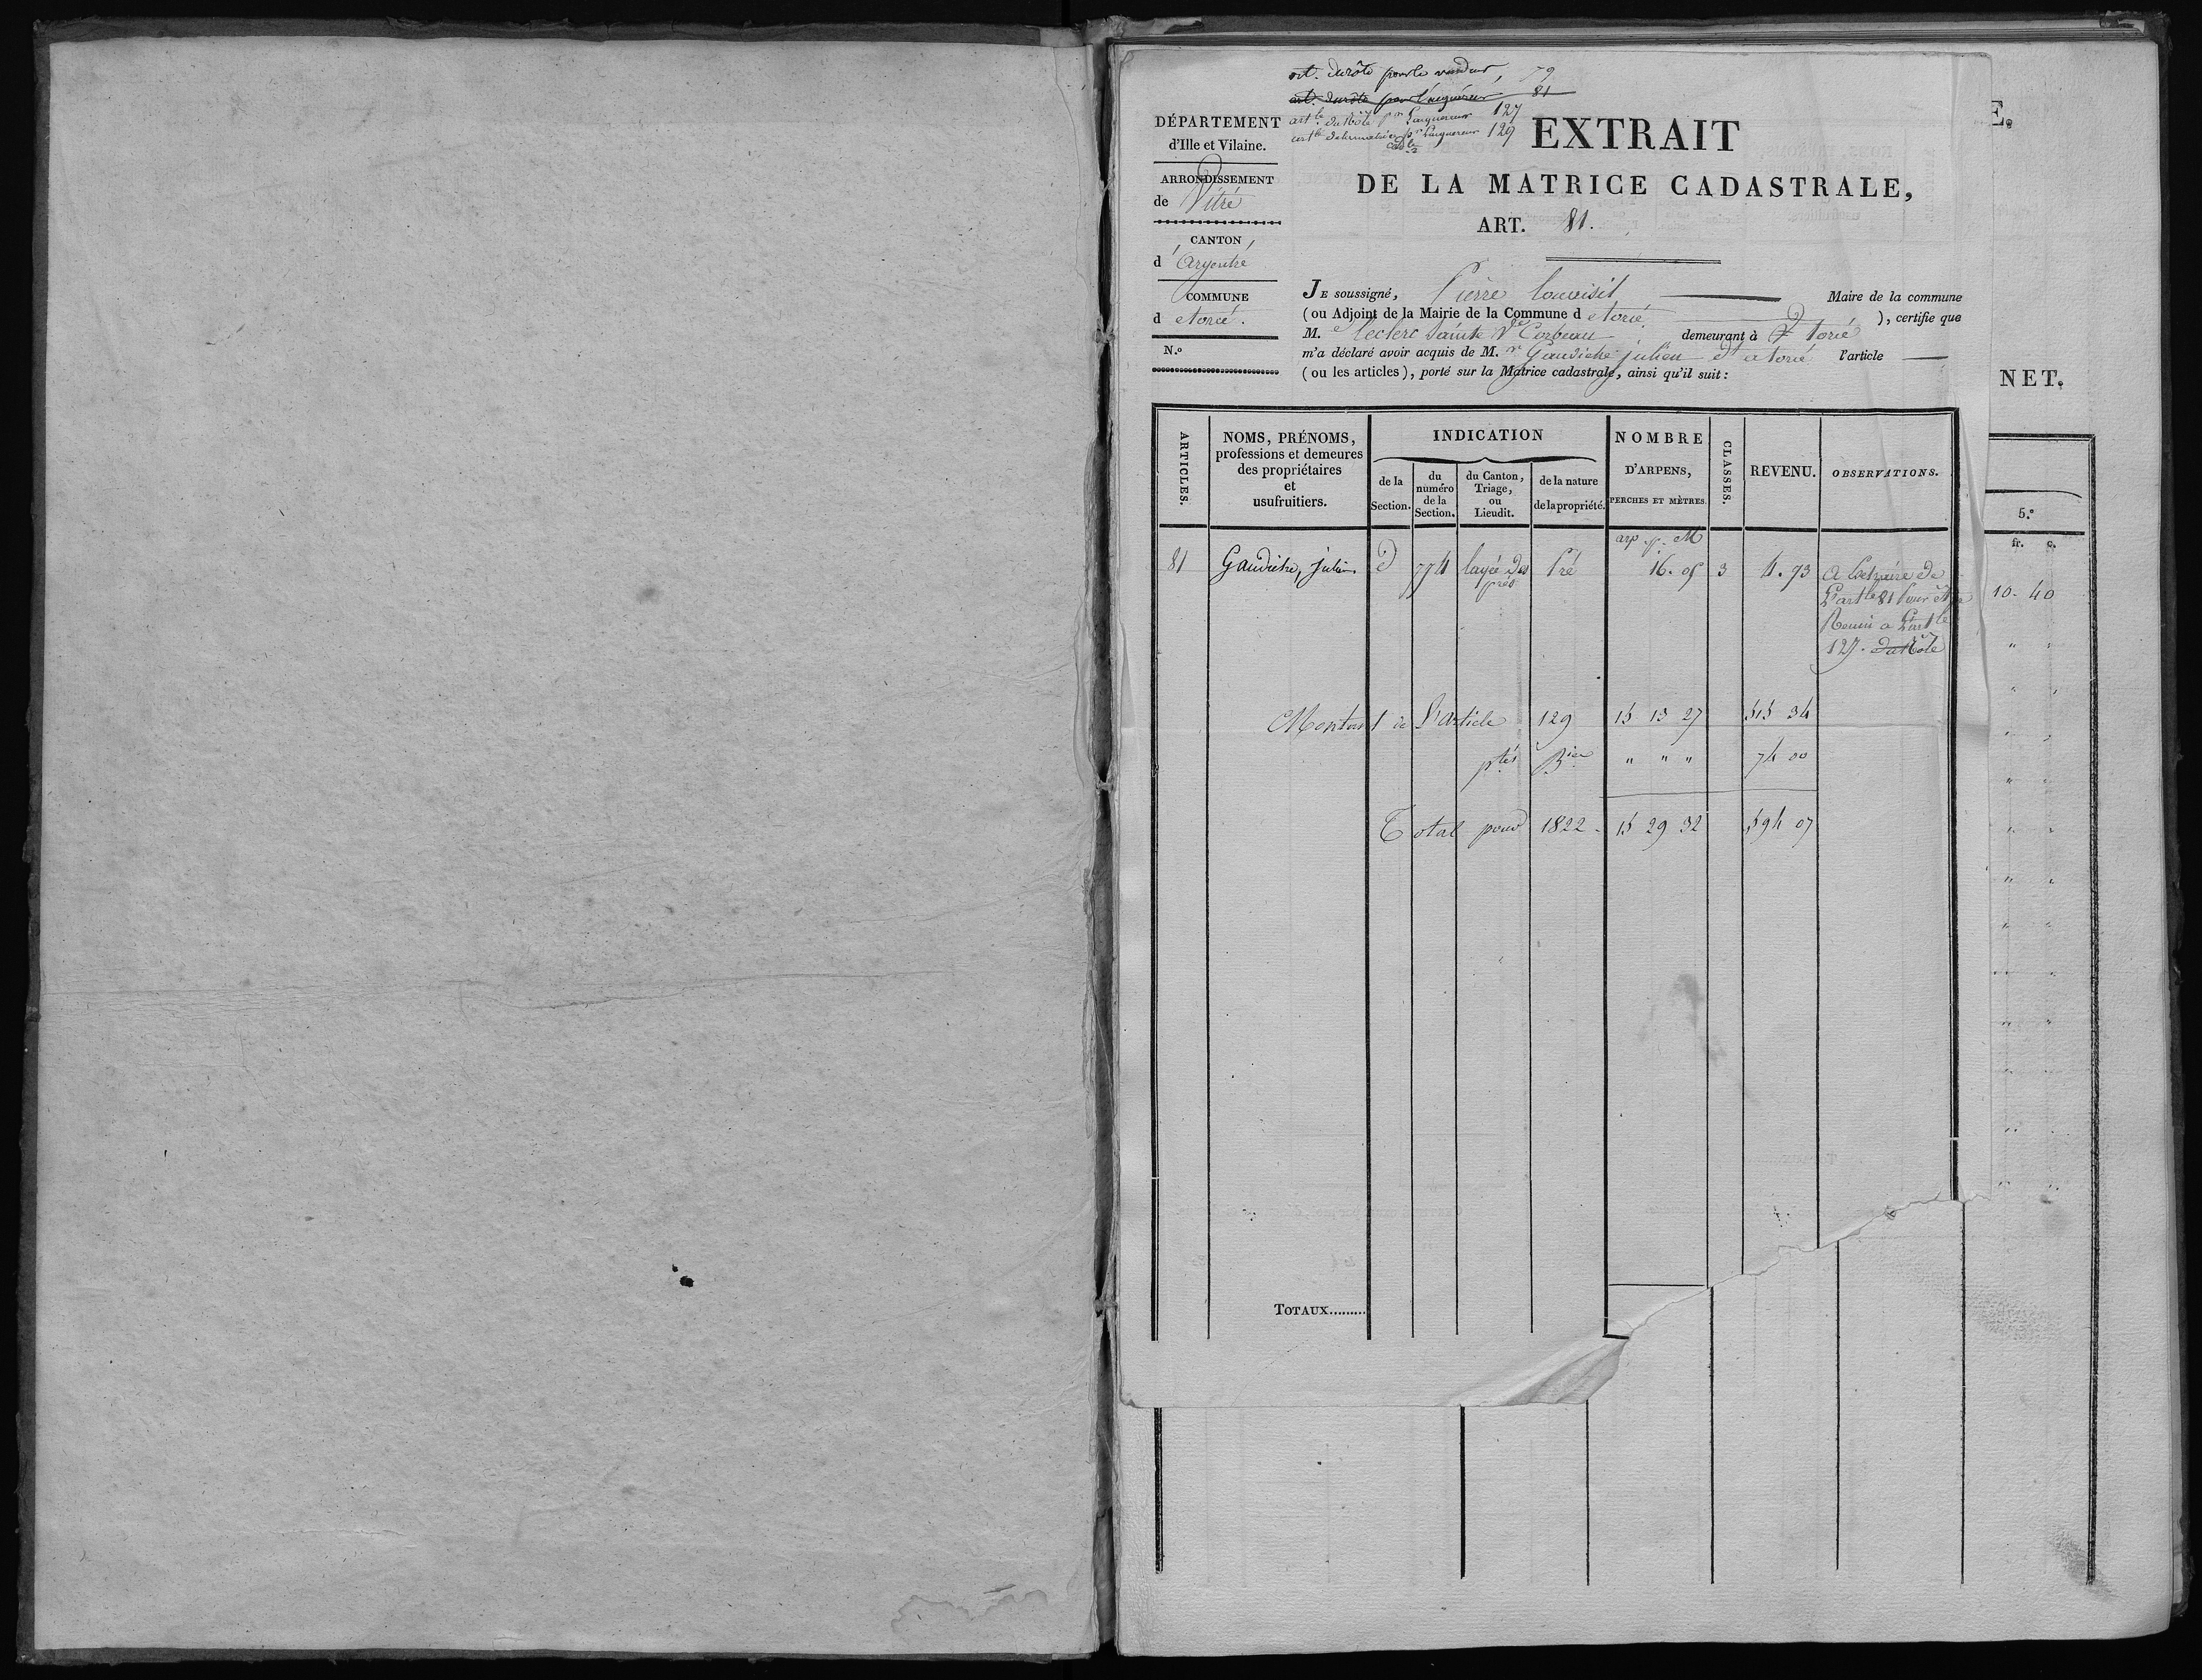 art. du rôle pour le vendeur, 79
art. du rôle pour l'acquéreur 81
artle du Rôle pr Lacquereur 127
artle de la matrice pr Lacquereur 129
cadle
DÉPARTEMENT
d'Ille et Vilaine.
ARRONDISSEMENT
de Vitré
CANTON
d'Argentré
COMMUNE
d'etorcé.
N.º
EXTRAIT
DE LA MATRICE CADASTRALE,
ART. 81.
JE soussigné, Pierre Maire de la commune
(ou Adjoint de la Mairie de la Commune d'etorcé ), certifie que
M. Leclerc Sainte Vve Corbeau demeurant à torcé
m'a déclaré avoir acquis de M.r Gaudiche julien d'etorcé l'article
(ou les articles), porté sur la Matrice cadastrale, ainsi qu'il suit:
ARTICLES.
NOMS, PRÉNOMS,
professions et demeures
des propriétaires
et
usufruitiers.
INDICATION
de la
Section.
du
numéro
de la
Section.
du Canton,
Triage,
ou
Lieudit.
de la nature
de la propriété.
NOMBRE
D'ARPENS,
PERCHES ET MÈTRES.
CLASSES.
REVENU.
OBSERVATIONS.
arp p. M
81 Gaudiche, julien. d 774 prés Pré 16. 05 3 4. 73
A Extraire de
L'artle 81 Pour être
Reuni a L'artle
127. du Rôle
Montant de L'article 129 15 13 27 515 34
ptés Bies " " " 74 00
Total pour 1822. 15 29 32 594 07
TOTAUX.........
E.
NET.
5.º
fr. c.
10. 40